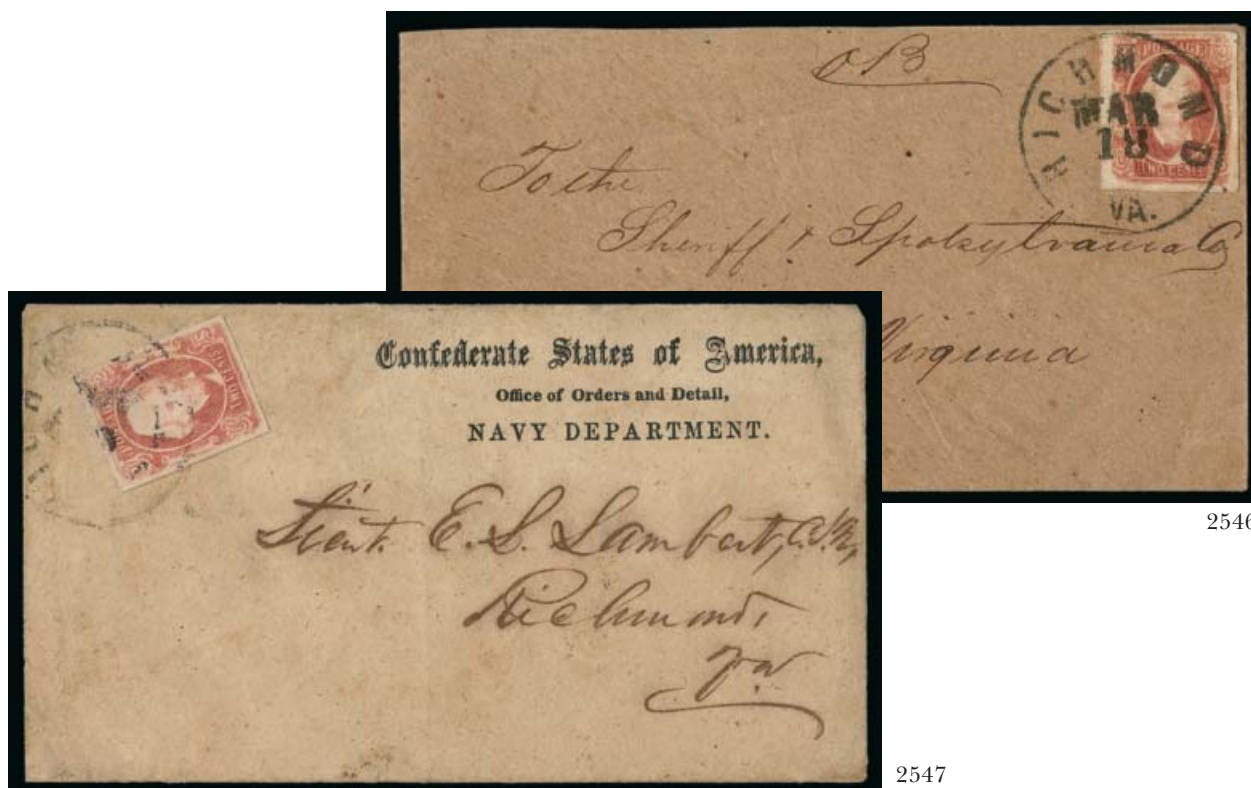 OB
POSTAGE
TWO CENTS
RICHMOND
MAR
18
VA.
To the
Sheriff of Spotsylvania Co
Virginia
2546
Confederate States of America,
Office of Orders and Detail,
NAVY DEPARTMENT.
Lieut. E. S. Lambert, C.S.N,
Richmond,
Va
2547